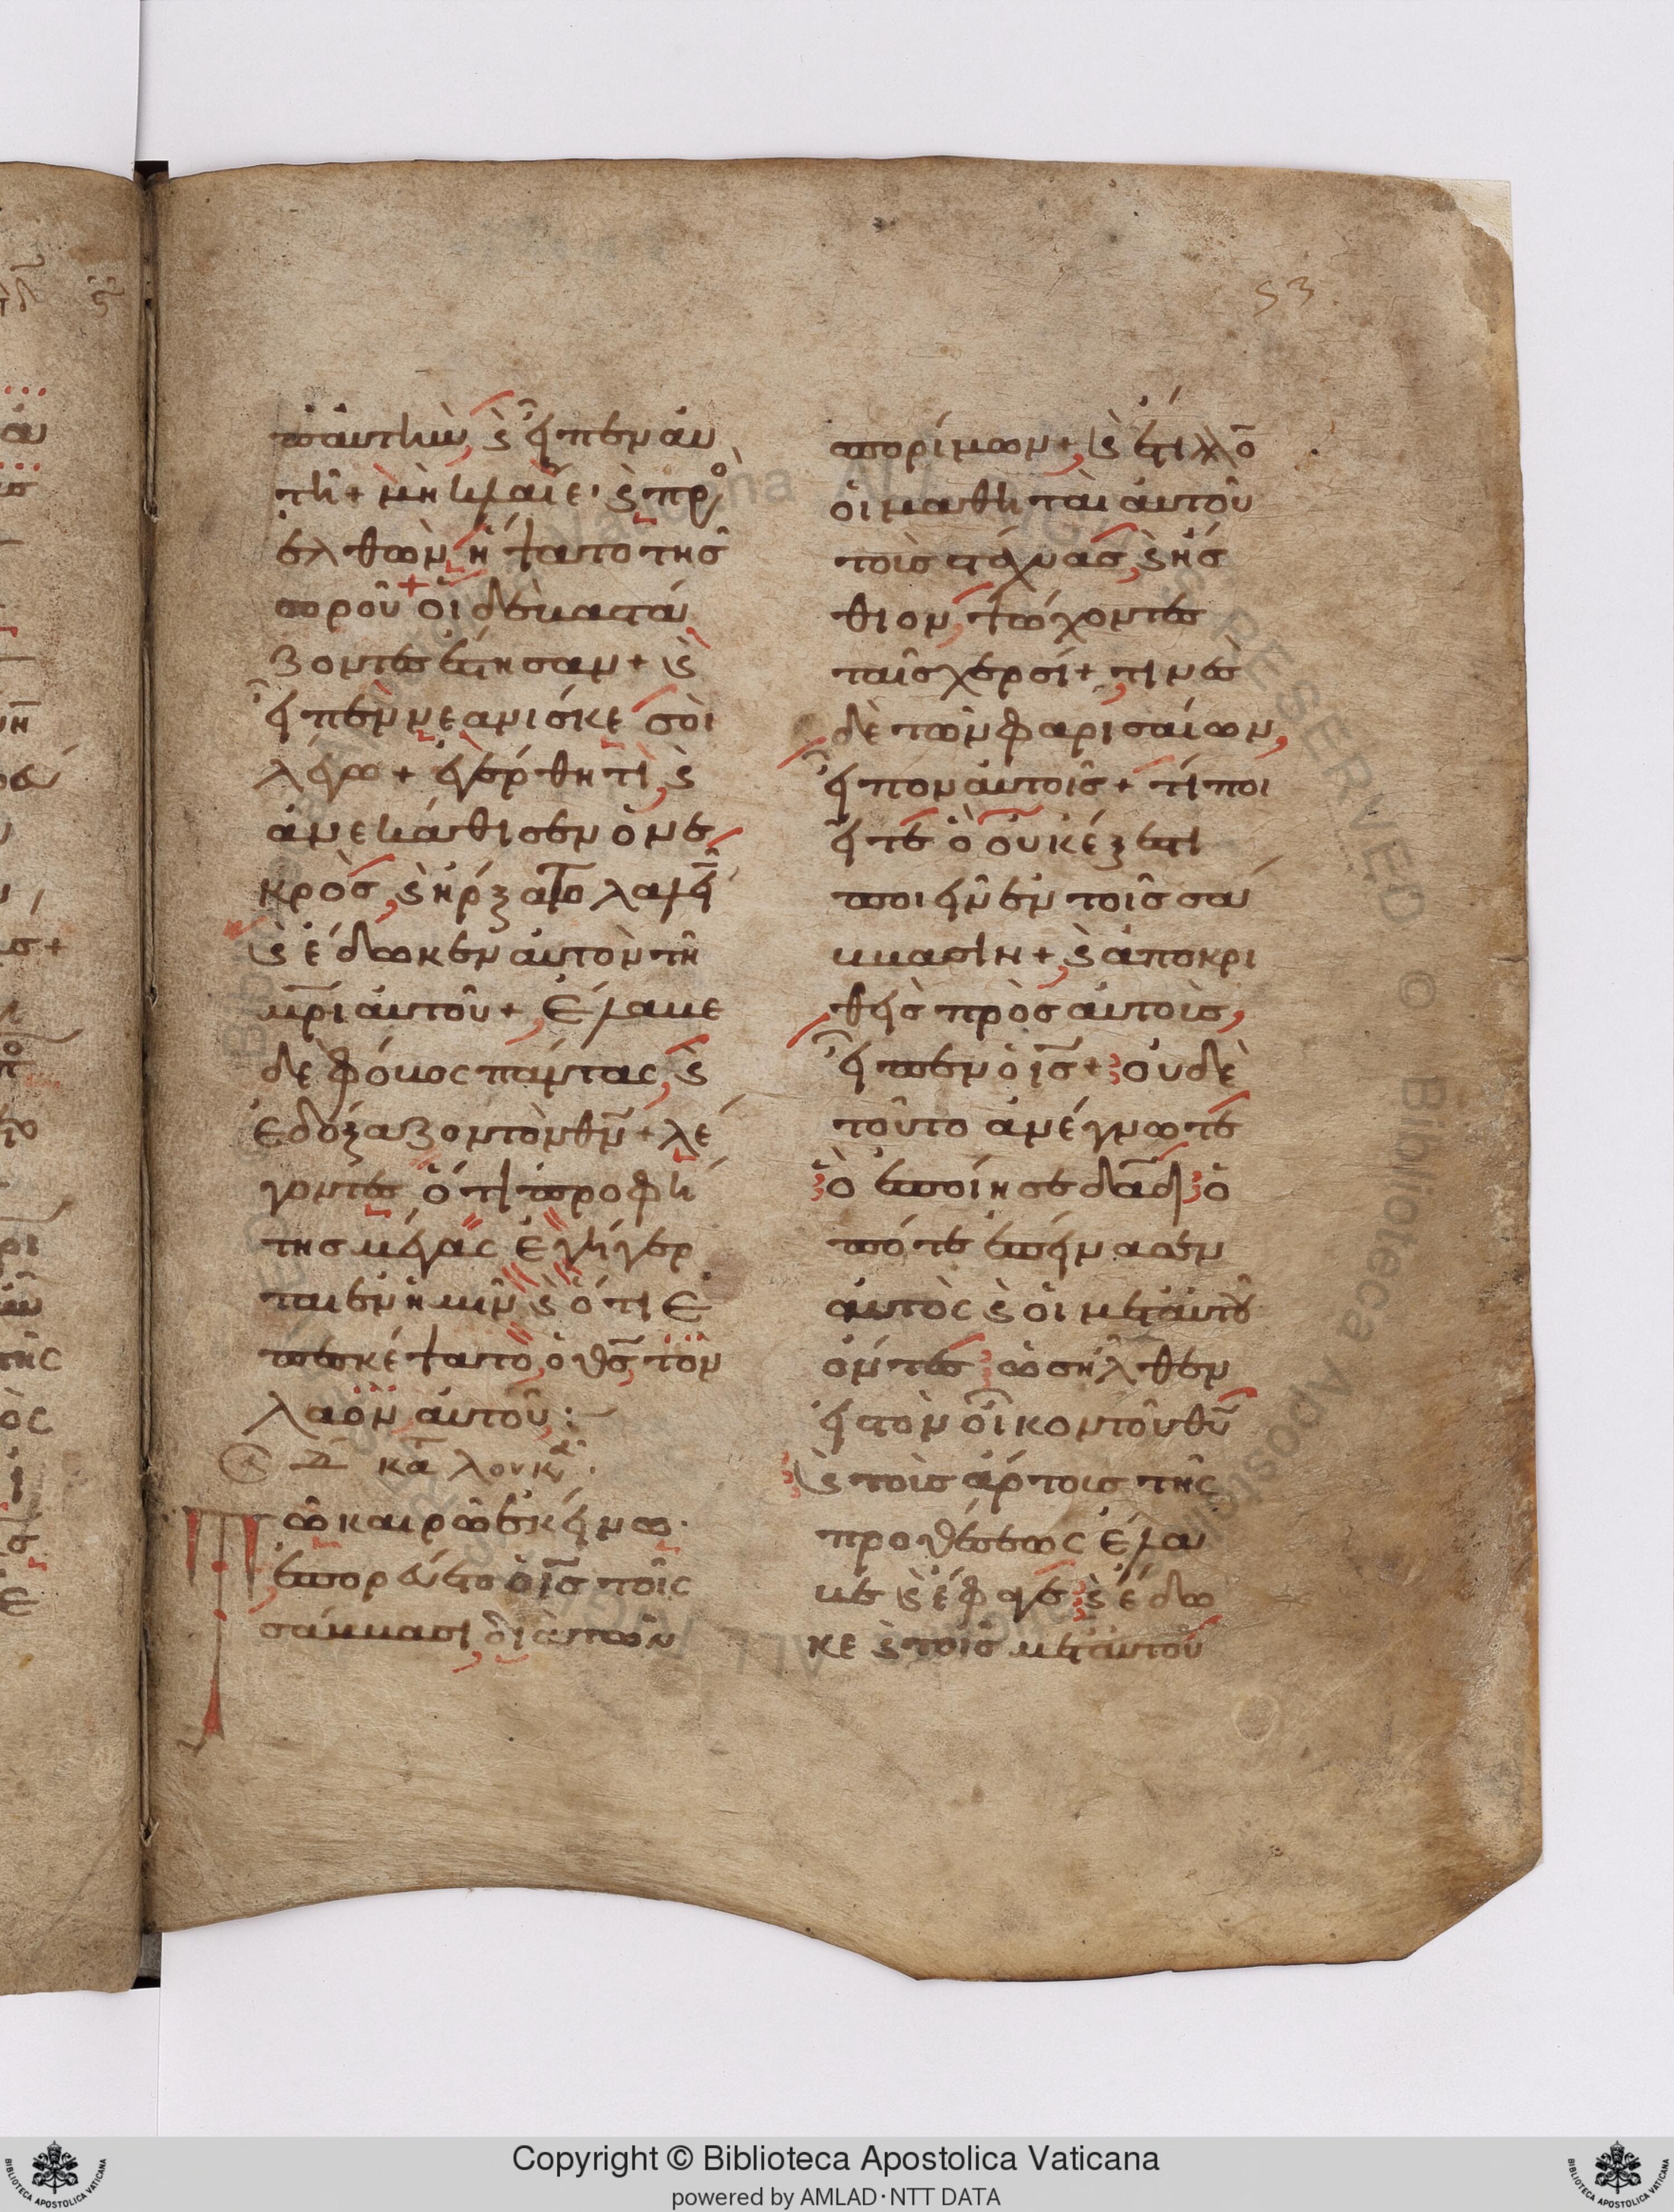 53
ἐπ' αὐτὴν, ϗ εἶπεν αὐ
τῆ + μὴ κλαῖε· ϗ προ
ελθὼν ἥψατο τῆς
σοροῦ οἱ δὲ βαστά
ζοντες ἔστησαν + ϗ
εἶπεν νεανίσκε σοὶ
λέγω + ἐγέρθητι, ϗ
ἀνεκάθισεν ὁ νε
κρὸς, ϗ ἤρξατο λαλεῖ̄
ϗ ἔδωκεν αὐτὸν τῆ
μρ̄ι αὐτοῦ + ἔλαβε
δὲ φόβος πάντας, ϗ
ἐδόξαζον τὸν θν̄ + λέ
γοντες ὅτι προφή
της μέγας ἐγήγερ
ται ἐν ἡμῖν ϗ ὅτι ἐ
πεσκέψατο, ὁ θς̄ τὸν
λαὸν αὐτοῦ :
κατὰ λουκ
Τῶ καιρῶ ἐκείνω·
ἐπορεύετο ὁ ις̄ τοῖς
σάββασι διὰ τῶν
σπορίμων +, ϗ ἔτιλλο̄
οἱ μαθηταὶ αὐτοῦ
τοὺς στάχυας, ϗ ἤσ
θιον, ψώχοντες
ταῖς χερσί +, τινὲς
δὲ τῶν φαρισαίων,
εἶπον αὐτοῖς + τί ποι
εῖτε ὃ οὐκ ἔξεστι
ποιεῖν ἐν τοῖς σά
ββασιν +, ϗ ἀποκρι
θεὶς πρὸς αὐτοὺς,
εἶπεν ὁ ις̄ + οὐδὲ
τοῦτο ἀνέγνωτε
ὃ ἐποίησε δαδ̄ ὁ
πότε ἐπείνασεν
αὐτὸς ϗ οἱ μετ' αὐτοῦ
ὄντες ὡς εἰσῆλθεν
εἰς τὸν οἶκον τοῦ θῡ
ϗ τοὺς ἄρτους τῆς
προθέσεως ἔλα
βε ϗ ἔφαγε ϗ ἔδω
κε ϗ τοῖς μετ' αὐτοῦ
Copyright © Biblioteca Apostolica Vaticana
powered by AMLAD·NTT DATA